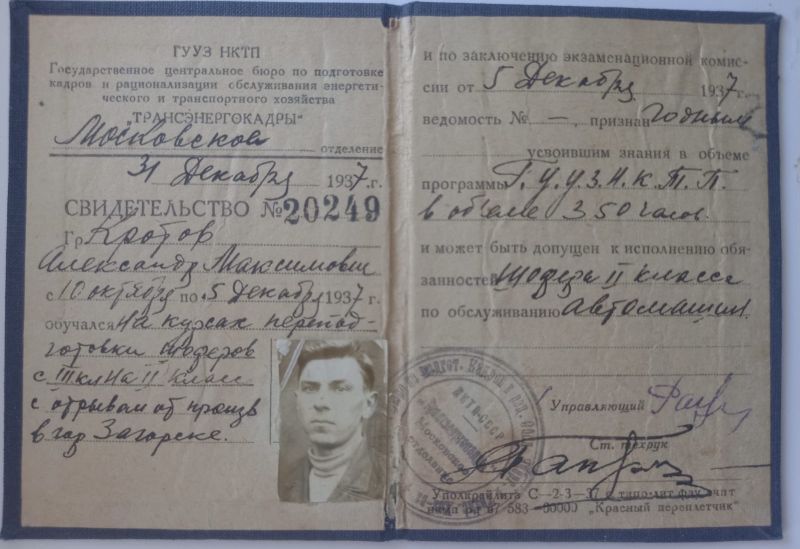 ГУУЗ НКТП
Государственное центральное бюро по подготовке
кадров и рационализации обслуживания энергети-
ческого и транспортного хозяйства
"ТРАНСЭНЕРГОКАДРЫ"
Московское отделение
31 Декабря 1937 г.
СВИДЕТЕЛЬСТВО № 20249
Гр Кротов
Александр Максимович
с 10 октября по 5 Декабря 1937 г.
обучался на курсах перепод-
готовки шоферов
с III кл на II класс
с отрывом от произв
в гор Загорске.
и по заключению экзаменационной комис-
сии от 5 Декабря 1937 г.
ведомость № — , признан годным
усвоившим знания в объеме
программы Г.У.У.З.Н.К.Т.П.
в объеме 350 часов.
и может быть допущен к исполнению обя-
занностей Шофера II класса
по обслуживанию автомашин.
НКТП-СССР
Управляющий
Ст. техрук
Уполкрайлита С—2—3—37 г. типо-лит
587 583—50000 "Красный переплетчик"